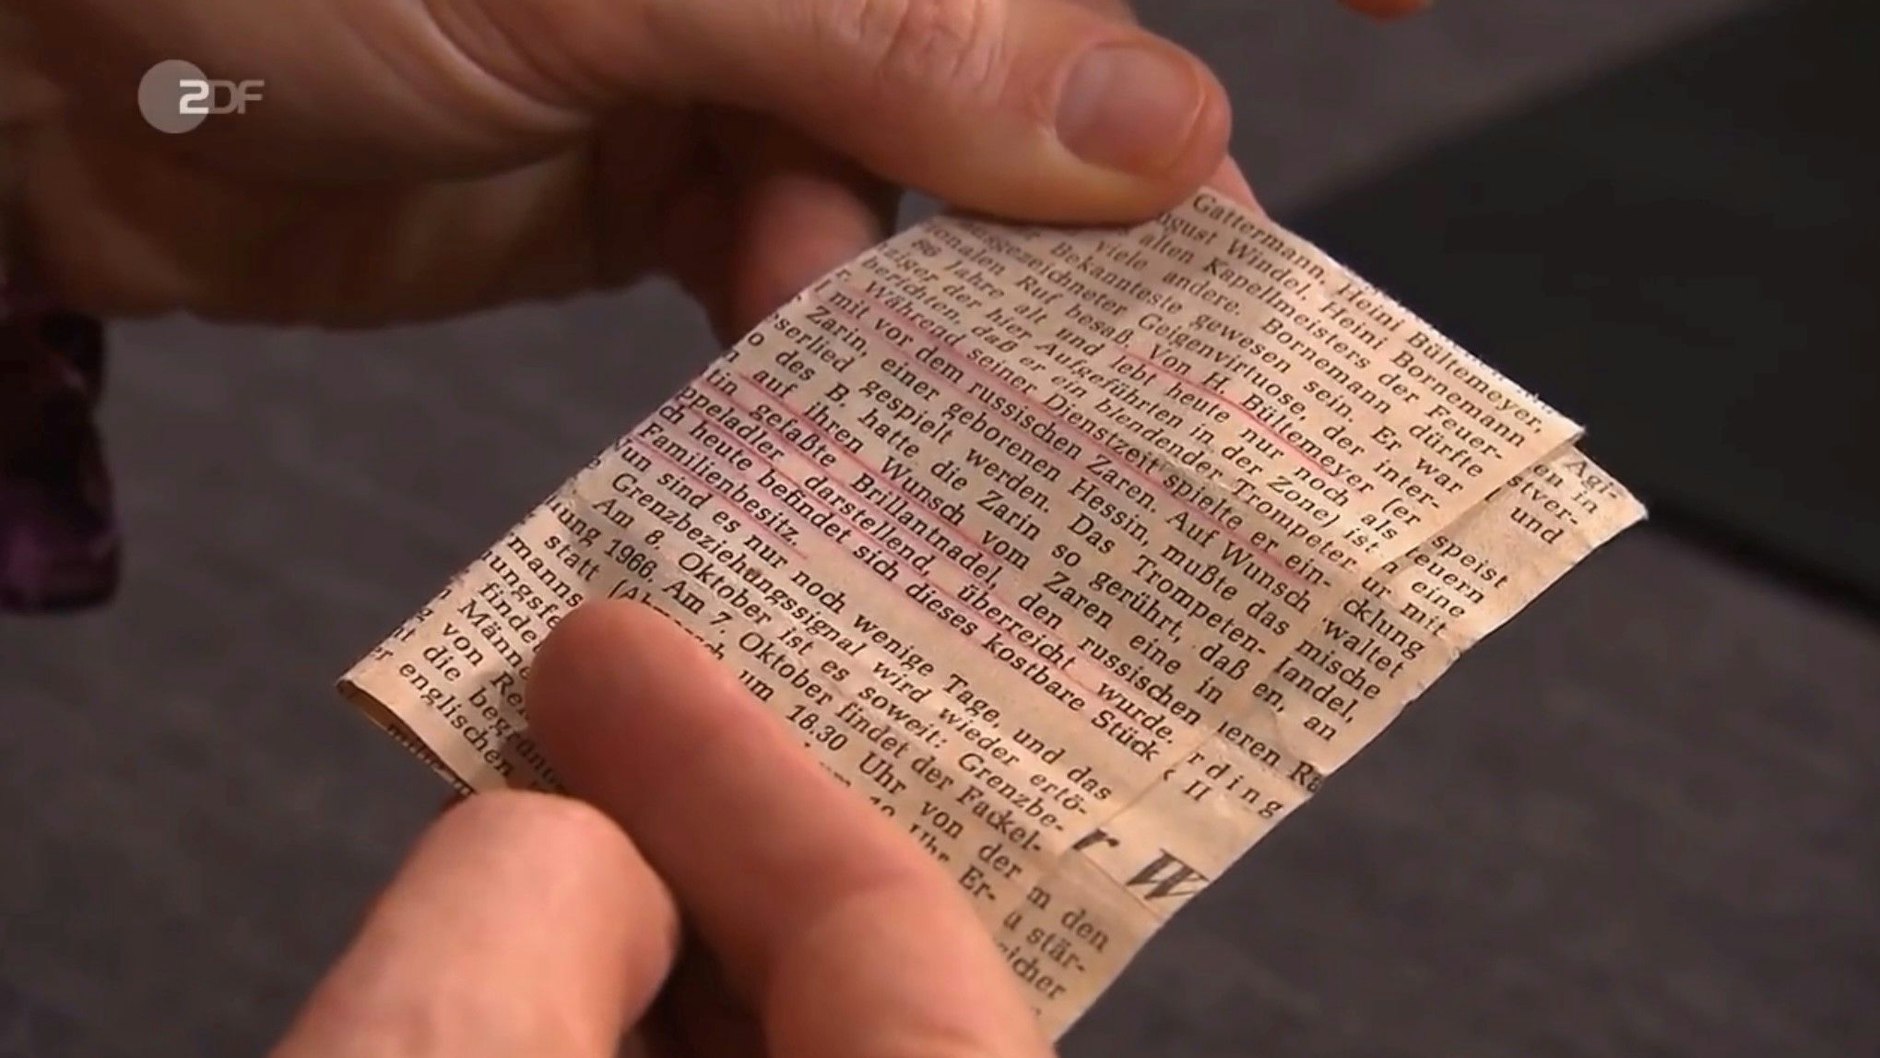 ZDF
Gattermann, Heini Bültemeyer,
Windel, Heini Bornemann
alten Kapellmeisters der Feuer-
viele andere. Bornemann dürfte
Bekannteste gewesen sein. Er war
ausgezeichneter Geigenvirtuose, der inter-
ionalen Ruf besaß. Von H. Bültemeyer (er
86 Jahre alt und lebt heute nur noch als
ziger der hier Aufgeführten in der Zone) ist
berichten, daß er ein blendender Trompeter
r. Während seiner Dienstzeit spielte er ein-
mit vor dem russischen Zaren. Auf Wunsch
Zarin, einer geborenen Hessin, mußte das
serlied gespielt werden. Das Trompeten-
o des B. hatte die Zarin so gerührt, daß
n auf ihren Wunsch vom Zaren eine in
tin gefaßte Brillantnadel, den russischen
ppeladler darstellend, überreicht wurde.
ch heute befindet sich dieses kostbare Stück
Familienbesitz.
un sind es nur noch wenige Tage, und das
Grenzbeziehungssignal wird wieder ertö-
Am 8. Oktober ist es soweit: Grenzbe-
ung 1966. Am 7. Oktober findet der Fackel-
statt um 18.30 Uhr von der
Uhr Er-
die
englischen
en in
stver-
und
speist
euern
eine
ur mit
cklung
waltet
mische
landel,
en, an
ieren
rding
II
r W
m den
u stär-